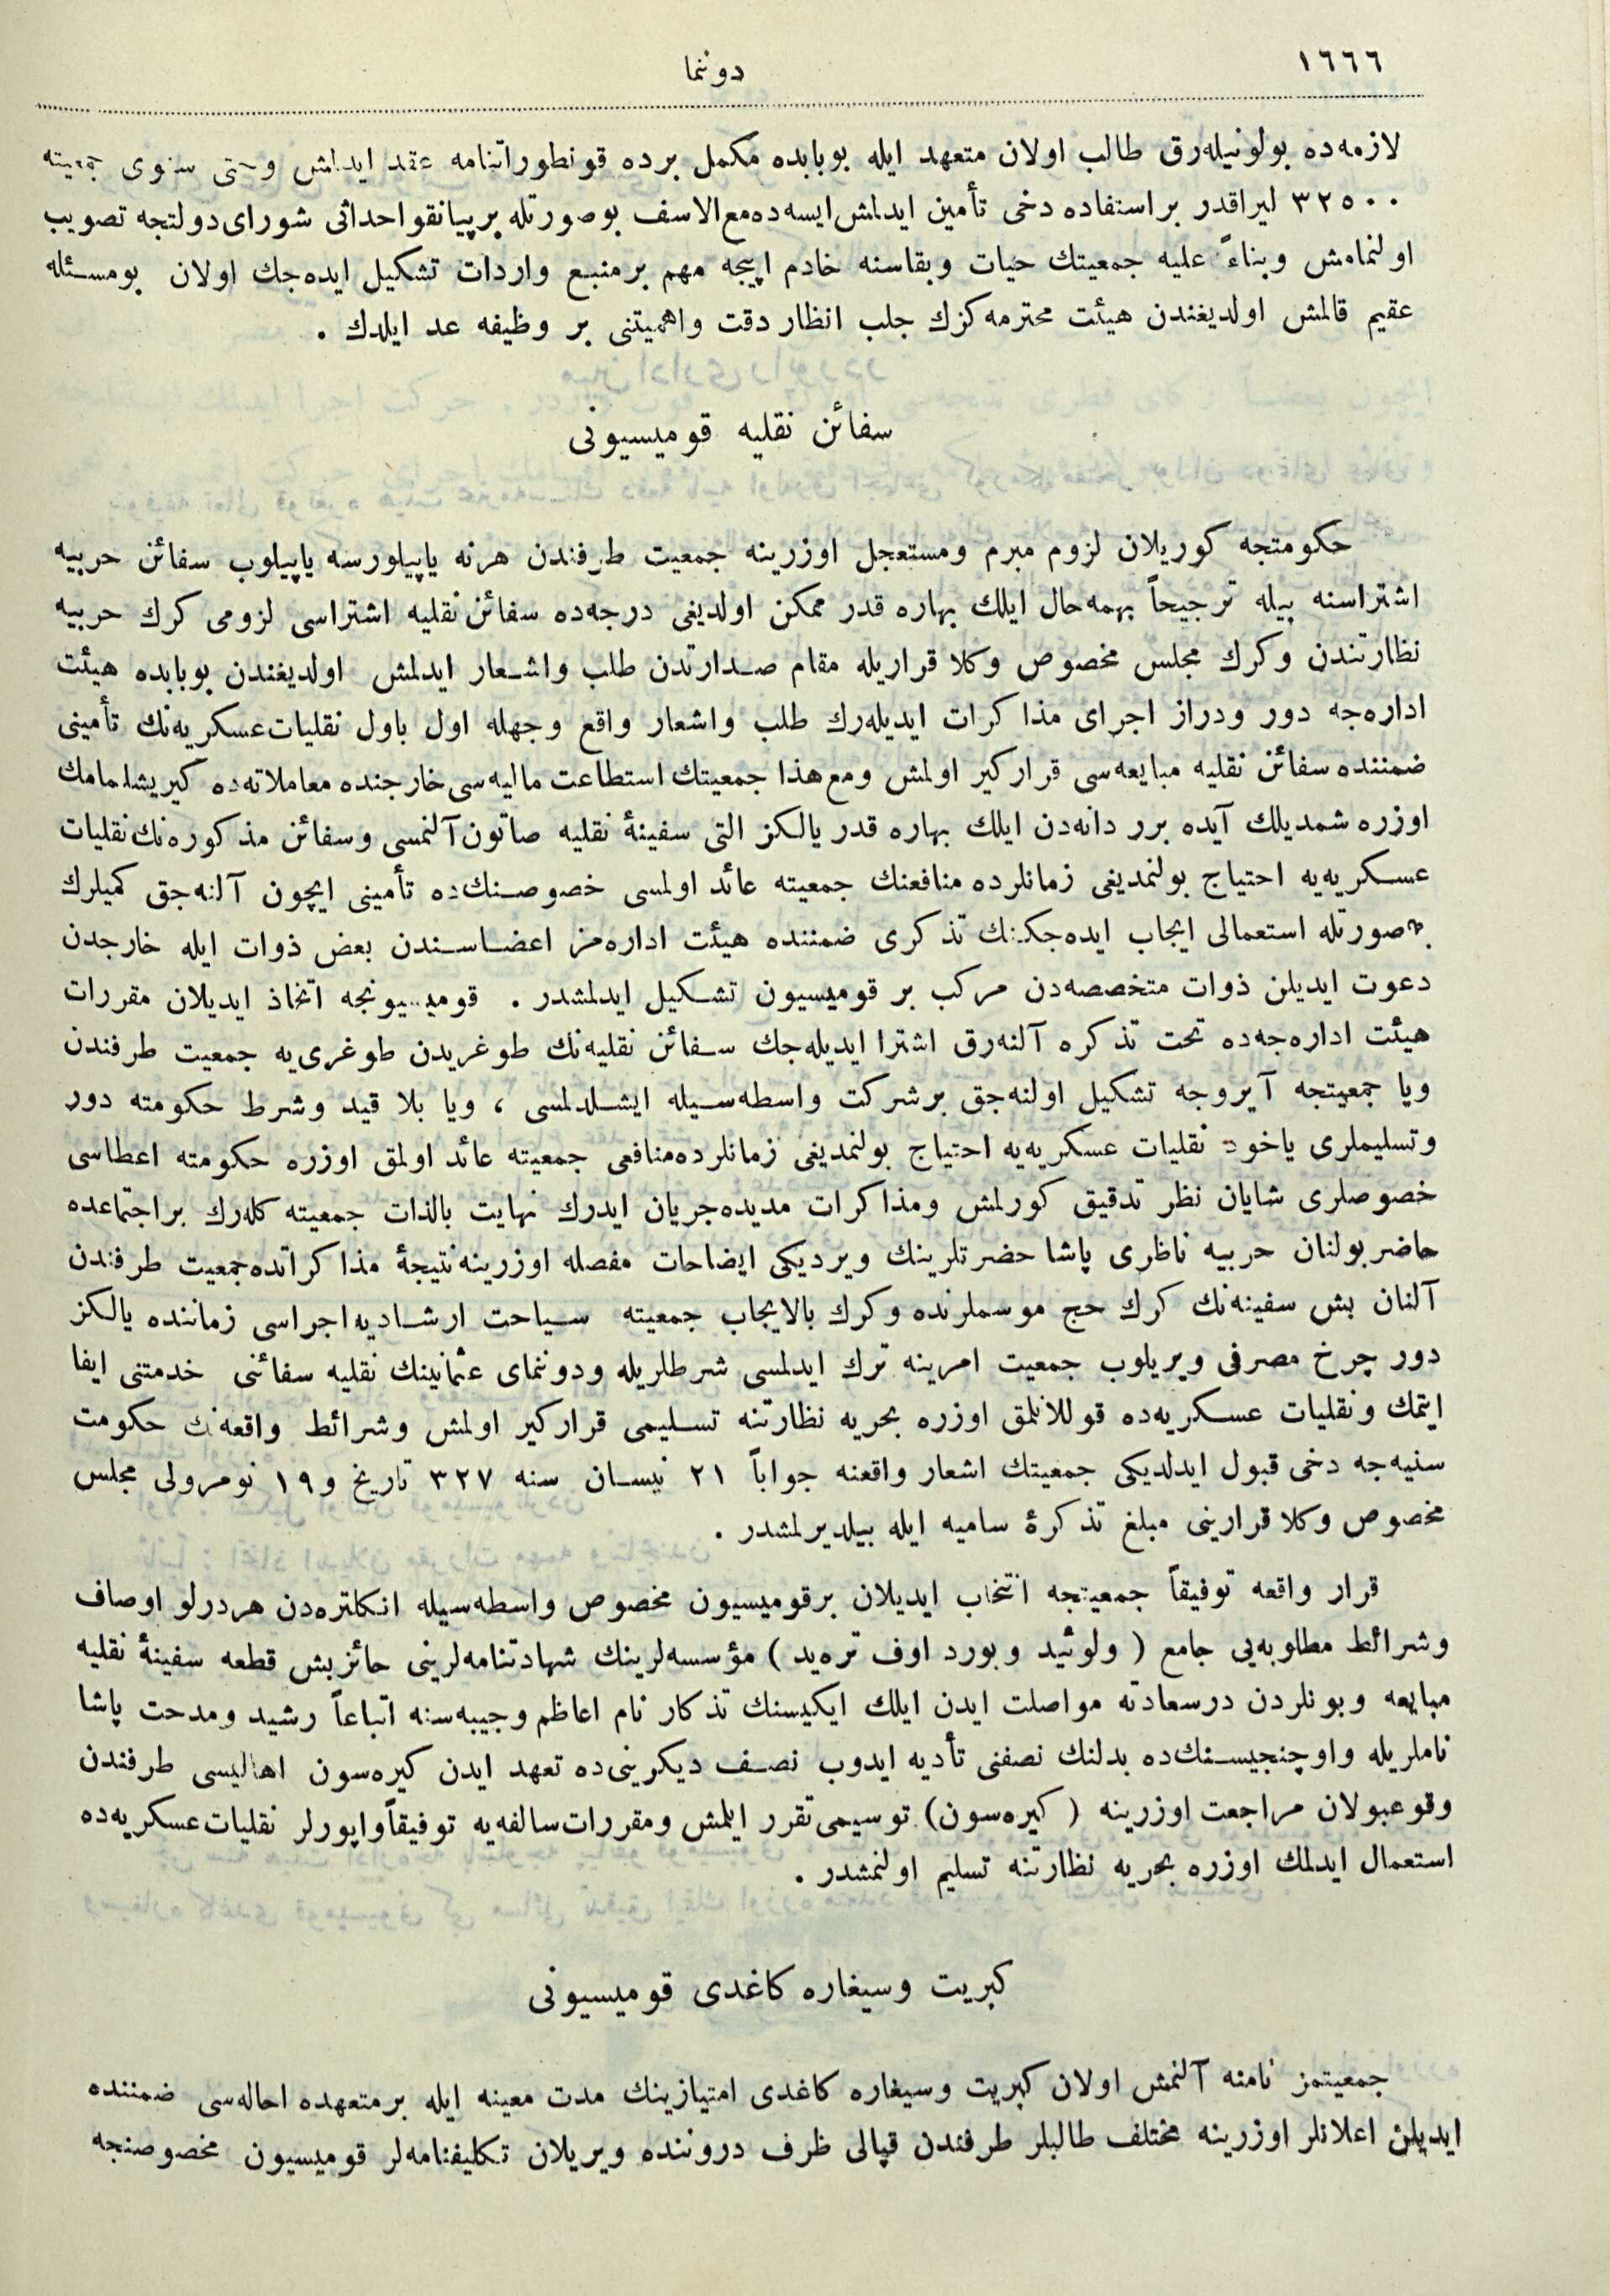 ١٦٦٦
دوننما
لازمه‌ده بولونیله‌رق طالب اولان متعهد ایله بوبابده مكمل برده قونطوراتنامه عقد ایدلمش وحتی سنوی جمعیته
٣٢٥٠٠ لیراقدر براستفاده دخی تأمین ایدلمش‌ایسه‌ده‌مع‌الاسف بوصورتله برپیانقواحداثی شورای‌دولتجه تصویب
اولنمامش وبناءً علیه جمعیتك حیات وبقاسنه خادم اپیجه مهم برمنبع واردات تشكیل ایده‌جك اولان بومسئله
عقیم قالمش اولدیغندن هیئت محترمه‌كزك جلب انظار دقت واهمیتنی بر وظیفه عد ایلدك .
سفائن نقلیه قومیسیونی
حكومتجه كوریلان لزوم مبرم ومستعجل اوزرینه جمعیت طرفندن هرنه یاپیلورسه یاپیلوب سفائن حربیه
اشتراسنه بیله ترجیحاً بهمه‌حال ایلك بهاره قدر ممكن اولدیغی درجه‌ده سفائن نقلیه اشتراسی لزومی كرك حربیه
نظارتندن وكرك مجلس مخصوص وكلا قراریله مقام صدارتدن طلب واشعار ایدلمش اولدیغندن بوبابده هیئت
اداره‌جه دور ودراز اجرای مذاكرات ایدیله‌رك طلب واشعار واقع وجهله اول باول نقلیات‌عسكریه‌نك تأمینی
ضمننده سفائن نقلیه مبایعه‌سی قراركیر اولمش ومع‌هذا جمعیتك استطاعت مالیه‌سی خارجنده معاملاته‌ده كیریشلمامك
اوزره شمدیلك آیده برر دانه‌دن ایلك بهاره قدر یالكز التی سفینهٔ نقلیه صاتون‌آلنمسی وسفائن مذكوره‌نك نقلیات
عسكریه‌یه احتیاج بولنمدیغی زمانلرده منافعنك جمعیته عائد اولمسی خصوصنك‌ده تأمینی ایچون آلنه‌جق كمیلرك
نه‌صورتله استعمالی ایجاب ایده‌جكنك تذكری ضمننده هیئت اداره‌مز اعضاسندن بعض ذوات ایله خارجدن
دعوت ایدیلن ذوات متخصصه‌دن مركب بر قومیسیون تشكیل ایدلمشدر . قومیسیونجه اتخاذ ایدیلان مقررات
هیئت اداره‌جه‌ده تحت تذكره آلنه‌رق اشترا ایدیله‌جك سفائن نقلیه‌نك طوغریدن طوغری‌یه جمعیت طرفندن
ویا جمعیتجه آیروجه تشكیل اولنه‌جق برشركت واسطه‌سیله ایشلدلمسی ، ویا بلا قید وشرط حكومته دور
وتسلیملری یاخود نقلیات عسكریه‌یه احتیاج بولنمدیغی زمانلرده‌منافعی جمعیته عائد اولمق اوزره حكومته اعطاسی
خصوصلری شایان نظر تدقیق كورلمش ومذاكرات مدیده‌جریان ایدرك نهایت بالذات جمعیته كله‌رك براجتماعده
حاضربولنان حربیه ناظری پاشا حضرتلرینك ویردیكی ایضاحات مفصله اوزرینه‌نتیجهٔ مذاكراتده‌جمعیت طرفندن
آلنان بش سفینه‌نك كرك حج موسملرنده وكرك بالایجاب جمعیته سیاحت ارشادیه‌اجراسی زماننده یالكز
دور چرخ مصرفی ویریلوب جمعیت امرینه ترك ایدلمسی شرطلریله ودوننمای عثمانینك نقلیه سفائنی خدمتنی ایفا
ایتمك ونقلیات عسكریه‌ده قوللانلمق اوزره بحریه نظارتنه تسلیمی قراركیر اولمش وشرائط واقعه‌نك حكومت
سنیه‌جه دخی قبول ایدلدیكی جمعیتك اشعار واقعنه جواباً ٢١ نیسان سنه ٣٢٧ تاریخ و١٩ نومرولی مجلس
مخصوص وكلا قرارینی مبلغ تذكرهٔ سامیه ایله بیلدیرلمشدر .
قرار واقعه توفیقاً جمعیتجه انتخاب ایدیلان برقومیسیون مخصوص واسطه‌سیله انكلتره‌دن هردرلو اوصاف
وشرائط مطلوبه‌یی جامع ( ولوئید وبورد اوف تره‌ید ) مؤسسه‌لرینك شهادتنامه‌لرینی حائزبش قطعه سفینهٔ نقلیه
مبایعه وبونلردن درسعادته مواصلت ایدن ایلك ایكیسنك تذكار نام اعاظم وجیبه‌سنه اتباعاً رشید ومدحت پاشا
ناملریله واوچنجیسنك‌ده بدلنك نصفنی تأدیه ایدوب نصف دیكرینی‌ده تعهد ایدن كیره‌سون اهالیسی طرفندن
وقوعبولان مراجعت اوزرینه ( كیره‌سون ) توسیمی‌تقرر ایلمش ومقررات‌سالفه‌یه توفیقاًواپورلر نقلیات‌عسكریه‌ده
استعمال ایدلمك اوزره بحریه نظارتنه تسلیم اولنمشدر .
كبریت وسیغاره كاغدی قومیسیونی
جمعیتمز نامنه آلنمش اولان كبریت وسیغاره كاغدی امتیازینك مدت معینه ایله برمتعهده احاله‌سی ضمننده
ایدیلن اعلانلر اوزرینه مختلف طالبلر طرفندن قپالی ظرف دروننده ویریلان تكلیفنامه‌لر قومیسیون مخصوصنجه